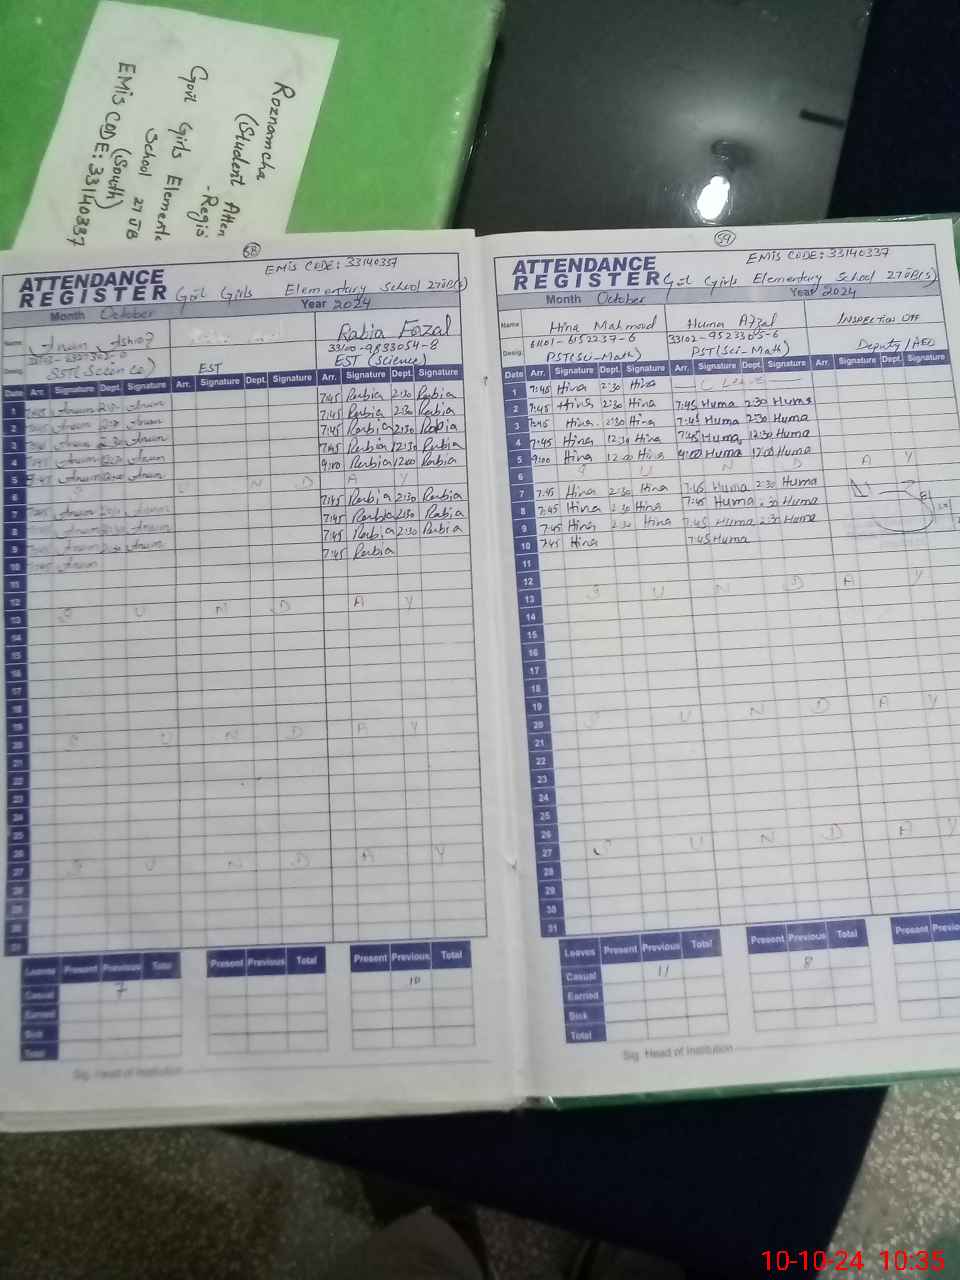 Roznamcha
(Student Atten
- Regis
Govt Girls Elemente
School 27 JB
(South)
EMIS CODE: 33140337
58
EMIS CODE: 33140337
ATTENDANCE
REGISTER Govt Girls Elementary School 27JB(S)
Month October Year 2024
Name Anum Rabia Fazal
33100-9833054-8
Desig. SST (Science) EST EST (Science)
Date Arr. Signature Dept. Signature Arr. Signature Dept. Signature Arr. Signature Dept. Signature
1 Anum Anum 7:45 Rabia 2:30 Rabia
2 Anum Anum 7:45 Rabia 2:30 Rabia
3 Anum Anum 7:45 Rabia 2:30 Rabia
4 Anum Anum 7:45 Rabia 12:30 Rabia
5 Anum Anum 9:00 Rabia 12:00 Rabia
6 S U N D A Y
7 Anum Anum 7:45 Rabia 2:30 Rabia
8 Anum Anum 7:45 Rabia 2:30 Rabia
9 Anum Anum 7:45 Rabia 2:30 Rabia
10 Anum 7:45 Rabia
11
12
13 S U N D A Y
14
15
16
17
18
19
20 S U N D A Y
21
22
23
24
25
26
27 S U N D A Y
28
29
30
31
Leaves Present Previous Total Present Previous Total Present Previous Total
Casual 7 10
Earned
Sick
Total
Sig. Head of Institution
59
EMIS CODE: 33140337
ATTENDANCE
REGISTER Govt Girls Elementary School 27JB(S)
Month October Year 2024
Name Hina Mahmood Huma Afzal INSPECTION OFF
61101-6152237-6 33102-9523305-6
Desig. PST (Sci-Math) PST (Sci-Math) Deputy/AEO
Date Arr. Signature Dept. Signature Arr. Signature Dept. Signature Arr. Signature Dept. Signature
1 7:45 Hina 2:30 Hina C Leave
2 7:45 Hina 2:30 Hina 7:45 Huma 2:30 Huma
3 7:45 Hina 2:30 Hina 7:45 Huma 2:30 Huma
4 7:45 Hina 12:30 Hina 7:45 Huma 12:30 Huma
5 9:00 Hina 12:00 Hina 9:00 Huma 12:00 Huma
6 S U N D A Y
7 7:45 Hina 2:30 Hina 7:45 Huma 2:30 Huma
8 7:45 Hina 2:30 Hina 7:45 Huma 2:30 Huma
9 7:45 Hina 2:30 Hina 7:45 Huma 2:30 Huma
10 7:45 Hina 7:45 Huma
11
12
13 S U N D A Y
14
15
16
17
18
19
20 S U N D A Y
21
22
23
24
25
26
27 S U N D A Y
28
29
30
31
Leaves Present Previous Total Present Previous Total Present Previou
Casual 11 8
Earned
Sick
Total
Sig. Head of Institution
10-10-24 10:35